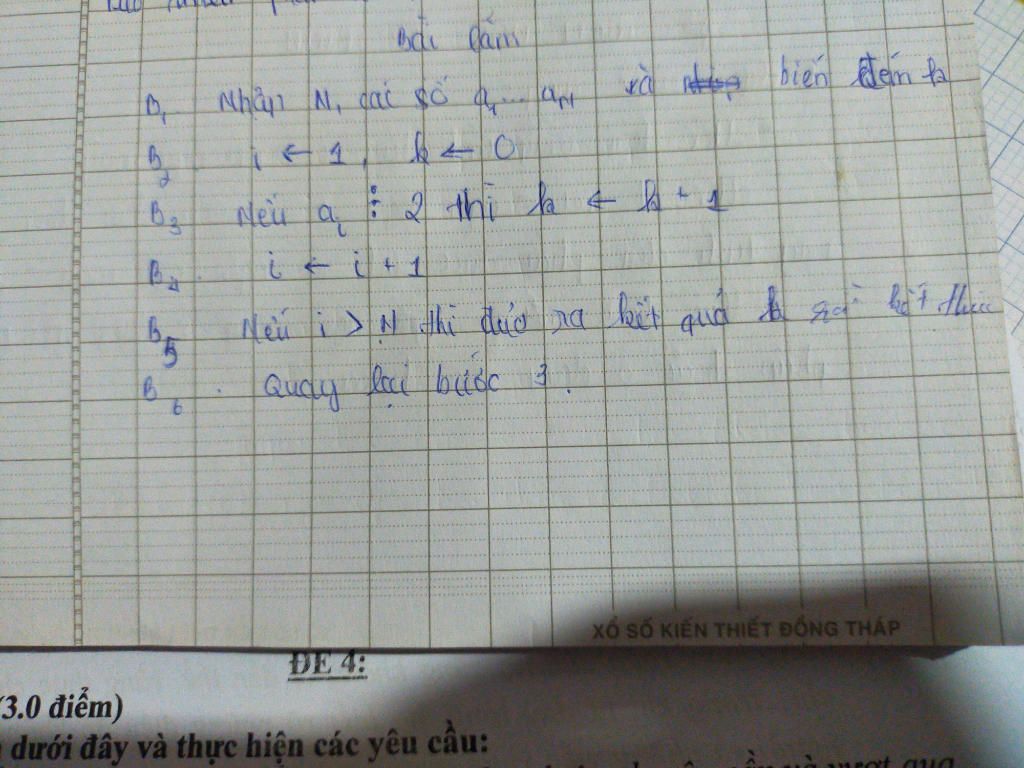 Bài làm
B1 Nhập N, các số a1... aN và biến đếm k
B2 i ← 1, k ← 0
B3 Nếu ai ⋮ 2 thì k ← k + 1
B4 i ← i + 1
B5 Nếu i > N thì đưa ra kết quả k rồi kết thúc
B6. Quay lại bước 3.
XỔ SỐ KIẾN THIẾT ĐỒNG THÁP
ĐỀ 4:
(3.0 điểm)
dưới đây và thực hiện các yêu cầu:
và vượt qua